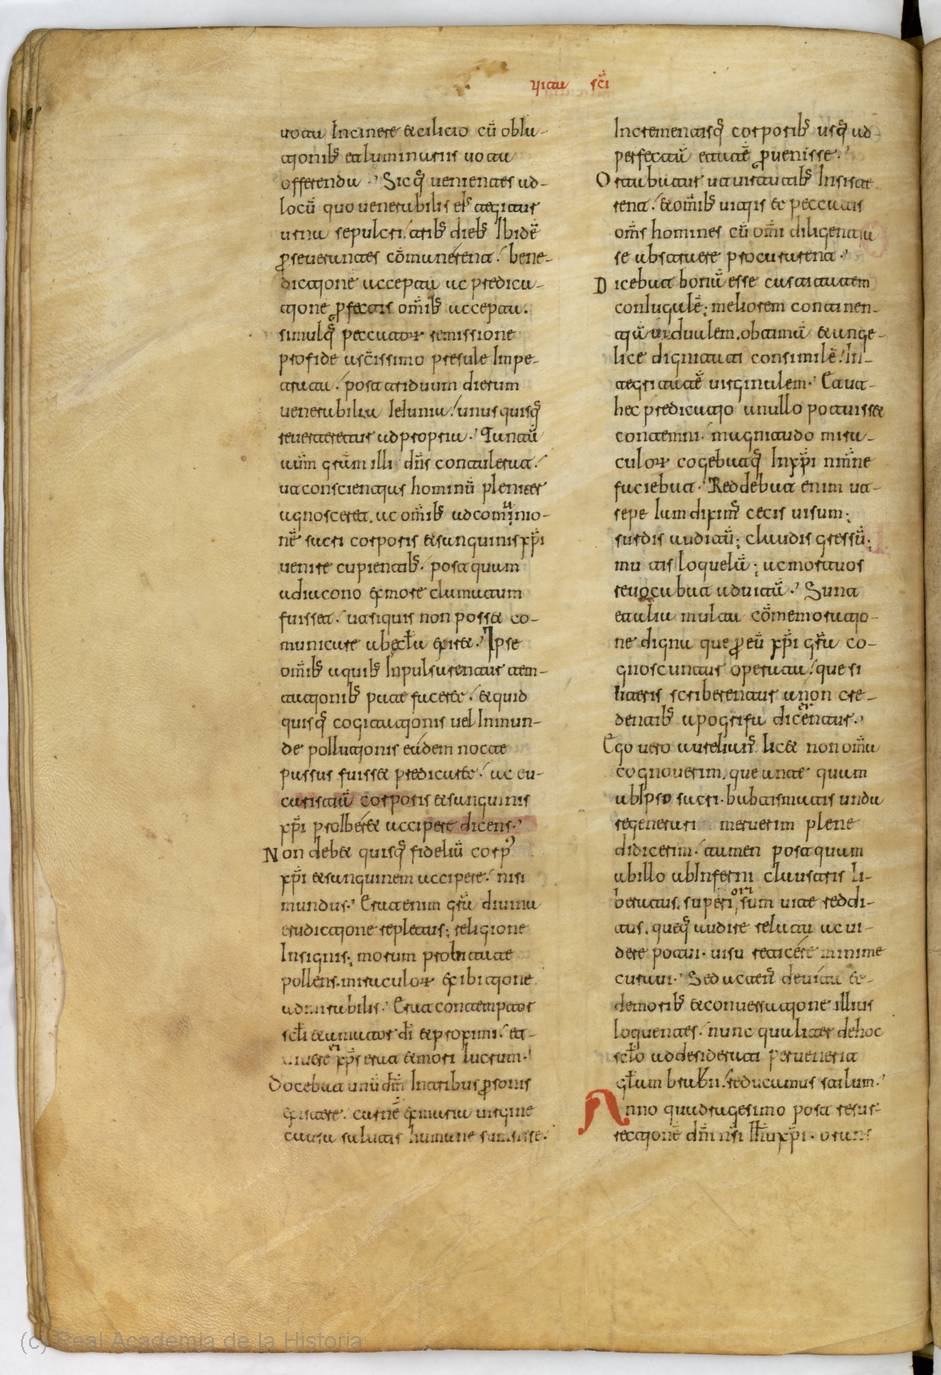 vita sci
uota In cinere et cilicio cū obla-
tionibꝫ et luminariis uota
offerenda · Sicqꝫ uenientes ad-
locū quo uenerabilis
sepulcri tribꝫ diebꝫ Ibidē
perseuerantes cōmunerent bene-
dictione accepta ac predica-
tione perfectis omībꝫ accepta
simulqꝫ peccator remissione
pro fide a scissimo presule Impe-
trata · post triduum dierum
uenerabilia Ieiunia unusquisqꝫ
reuerteretur ad propria · Tantā
illi dn̄s
conscientias hominū pleniter
agnosceret ut omībꝫ ad comunio-
nē sacri corporis et sanguinis xp̄i
uenire cupientibꝫ · postquam
a diacono ex more clamatum
fuisset · ut si quis non posset co-
municare exiret · Ipse
omībꝫ a quibꝫ Inpulsarentur tem-
tationibꝫ pate faceret · et quid
quisqꝫ cogitationis uel Inmun-
de pollutionis eadem nocte
passus fuisset predicaret · ac eu-
caristiā corporis et sanguinis
xp̄i prolberet accipere dicens ·
Non debet quisqꝫ fideliū corpꝰ
xp̄i et sanguinem accipere nisi
mundus · Erat enim diuina
eruditione repletus religione
Insignis morum probitate
pollens miraculor exibitione
admirabilis · Erat contemptor
scli et amator dī et proximi · et
xp̄s erat et mori lucrum ·
Docebat unū dm̄ In tribus personis
existere · carnē ex maria uirgine
causa salutis humane sumsisse ·
Incrementisqꝫ corporibꝫ usqꝫ ad-
perfectā etatē peruenisse ·
Ortabatur ut uirtutibꝫ Insiste
rent et omībꝫ uitiis et peccatis
om̄s homines cū om̄i diligentia
se abstraere procurarent ·
Dicebat bonū esse castitatem
coniugalē meliorem continen-
tiā uidualem obtimā et ange-
lice dignitati consimilē In-
tegritatē uirginalem · Cuta-
hec predicatio a nullo potuisset
contemni magnitudo mira-
culor cogebatqꝫ In xp̄i nm̄ne
faciebat · Reddebat enim ut-
sepe Iam diximꝰ cecis uisum
surdis auditū claudis gressū
mutis loquelā ac mortuos
reuocabat ad uitā · Sunt
et alia multa cōmemoratio-
ne digna que per eū xp̄i co-
gnoscuntur operata que si
litteris scriberentur a non cre-
dentibꝫ apogrifa dicerentur ·
Ego uero aurelius licet non omīa
cognouerim que ante quam
ab Ipso sacri babtismatis unda
regenerari meruerim plene
didicerim tamen postquam
ab illo ab Inferni claustris li-
beratus superiorū sum uite reddi-
tus queqꝫ audire relata ac ui-
dere potui uisu reticere minime
curaui · Sed ut de uita et-
de moribꝫ et conuersatione illius
loquentes nunc qualiter de hoc
sclo ad desiderati peruenerit
stilum ·
Anno quadragesimo post resur-
rectionē dn̄i nr̄i Ihu xp̄i ·